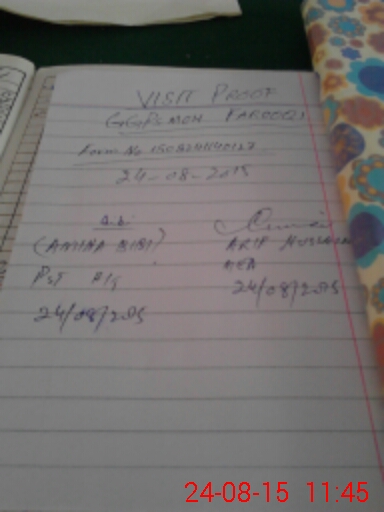 VISIT PROOF
GGPS MOH FAROOQI
Form No 15082411401
24-08-2015
a.b.
(AMINA BIBI)
PST
24/08/2015
ARIF HUSSAIN
MEA
24/08/2015
24-08-15 11:45